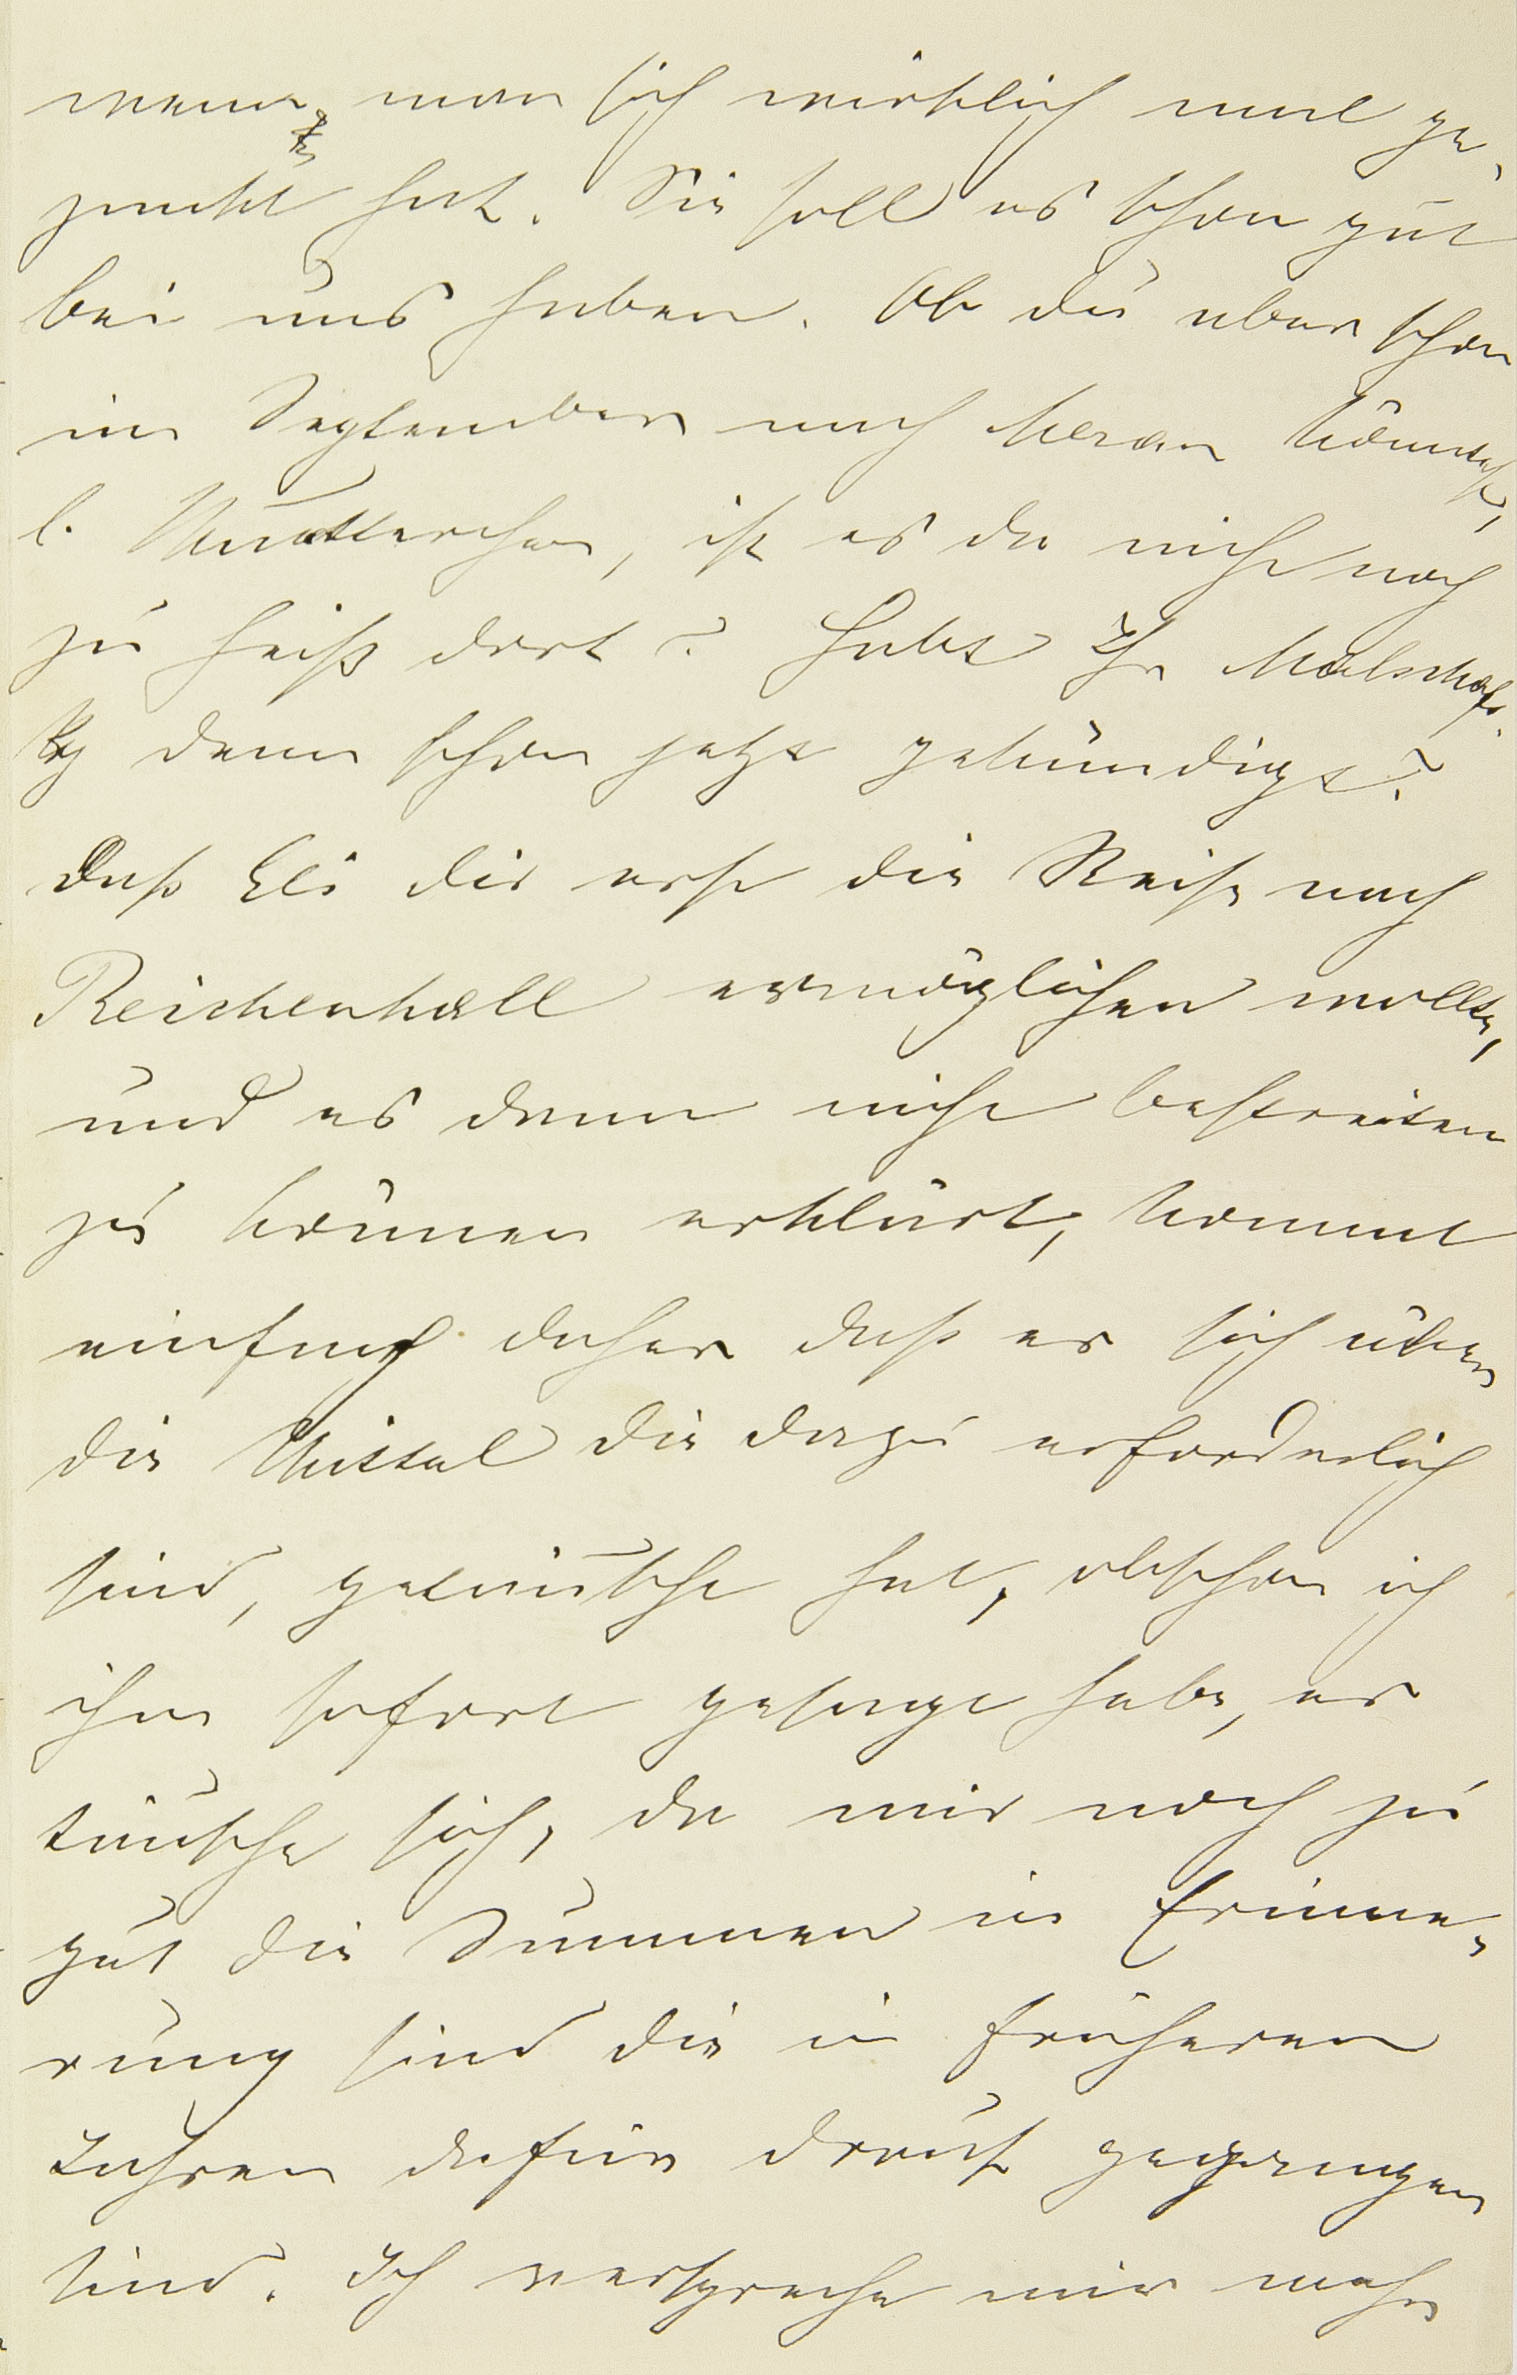 wenn man sich wirklich mal ge-
zankt hat. Sie soll es schon gut
bei uns haben. Ob du aber schon
im September nach Meran könntest,
l. Mutterchen, ist es da nicht noch
zu heiß dort? Habt Ihr
denn schon jetzt gekündigt?
Daß Eli dir erst die Reise nach
Reichenhall ermöglichen wollte,
und es dann nicht bestreiten
zu können erklärt, kommt
einfach daher daß er sich über
die Mittel die dazu erforderlich
sind, getäuscht hat, obschon ich
ihm sofort gesagt habe, er
täusche sich, da mir noch zu
gut die Summen in Erinne-
rung sind die in früheren
Jahren dafür drauf gegangen
sind. Ich verspreche mir mehr